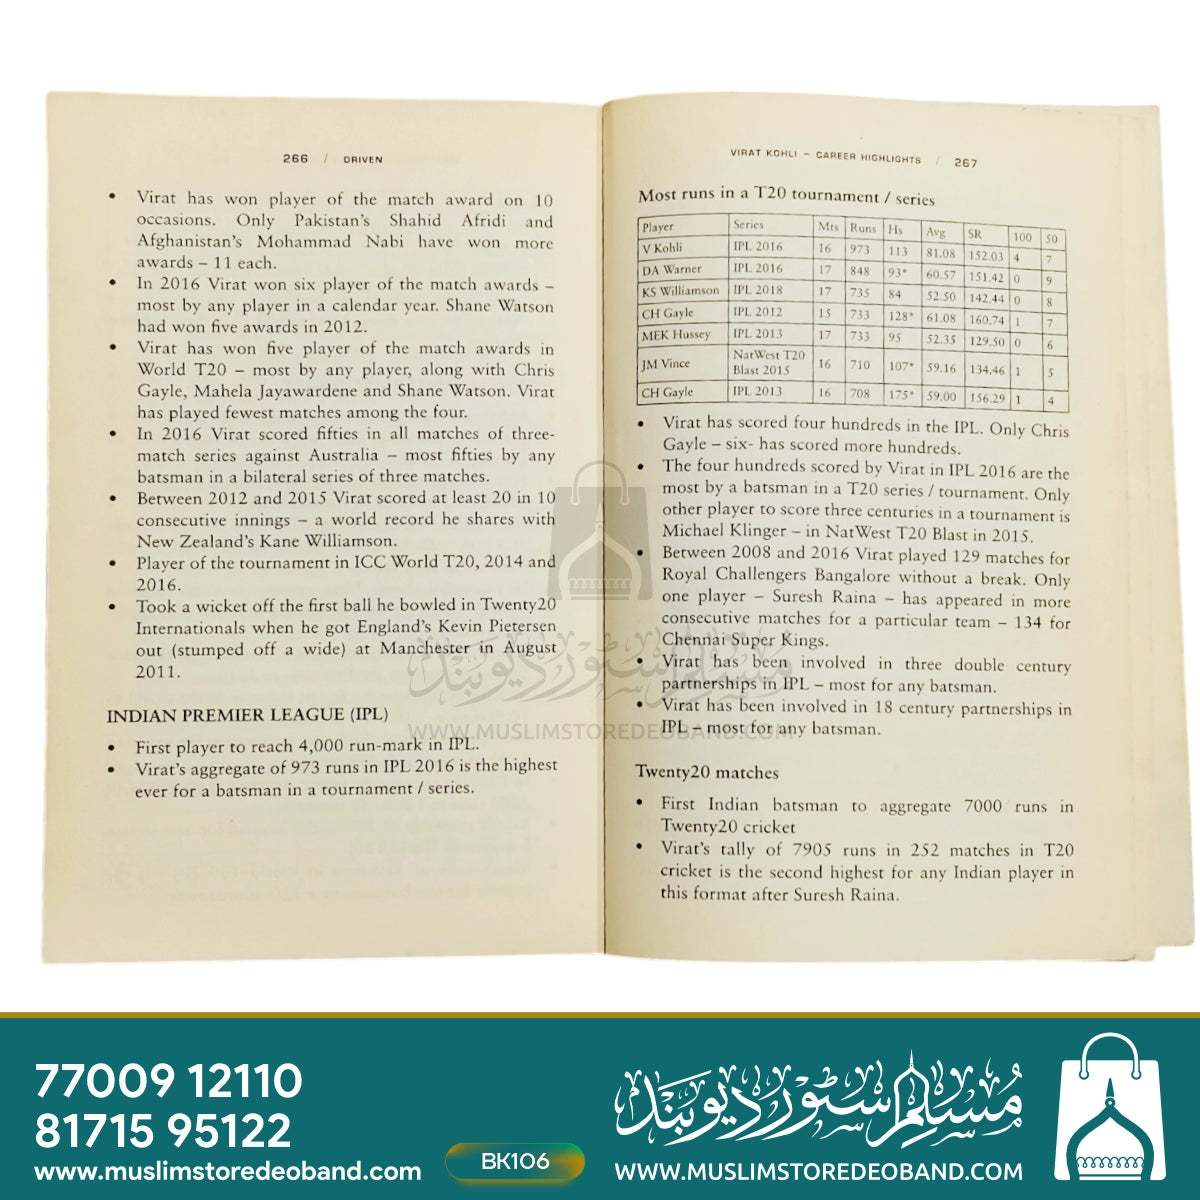 266 / DRIVEN
• Virat has won player of the match award on 10
occasions. Only Pakistan's Shahid Afridi and
Afghanistan's Mohammad Nabi have won more
awards – 11 each.
• In 2016 Virat won six player of the match awards –
most by any player in a calendar year. Shane Watson
had won five awards in 2012.
• Virat has won five player of the match awards in
World T20 – most by any player, along with Chris
Gayle, Mahela Jayawardene and Shane Watson. Virat
has played fewest matches among the four.
• In 2016 Virat scored fifties in all matches of three-
match series against Australia – most fifties by any
batsman in a bilateral series of three matches.
• Between 2012 and 2015 Virat scored at least 20 in 10
consecutive innings – a world record he shares with
New Zealand's Kane Williamson.
• Player of the tournament in ICC World T20, 2014 and
2016.
• Took a wicket off the first ball he bowled in Twenty20
Internationals when he got England's Kevin Pietersen
out (stumped off a wide) at Manchester in August
2011.
INDIAN PREMIER LEAGUE (IPL)
• First player to reach 4,000 run-mark in IPL.
• Virat's aggregate of 973 runs in IPL 2016 is the highest
ever for a batsman in a tournament / series.
VIRAT KOHLI – CAREER HIGHLIGHTS / 267
Most runs in a T20 tournament / series
Player Series Mts Runs Hs Avg SR 100 50
V Kohli IPL 2016 16 973 113 81.08 152.03 4 7
DA Warner IPL 2016 17 848 93* 60.57 151.42 0 9
KS Williamson IPL 2018 17 735 84 52.50 142.44 0 8
CH Gayle IPL 2012 15 733 128* 61.08 160.74 1 7
MEK Hussey IPL 2013 17 733 95 52.35 129.50 0 6
JM Vince NatWest T20 Blast 2015 16 710 107* 59.16 134.46 1 5
CH Gayle IPL 2013 16 708 175* 59.00 156.29 1 4
• Virat has scored four hundreds in the IPL. Only Chris
Gayle – six- has scored more hundreds.
• The four hundreds scored by Virat in IPL 2016 are the
most by a batsman in a T20 series / tournament. Only
other player to score three centuries in a tournament is
Michael Klinger – in NatWest T20 Blast in 2015.
• Between 2008 and 2016 Virat played 129 matches for
Royal Challengers Bangalore without a break. Only
one player – Suresh Raina – has appeared in more
consecutive matches for a particular team – 134 for
Chennai Super Kings.
• Virat has been involved in three double century
partnerships in IPL – most for any batsman.
• Virat has been involved in 18 century partnerships in
IPL – most for any batsman.
Twenty20 matches
• First Indian batsman to aggregate 7000 runs in
Twenty20 cricket
• Virat's tally of 7905 runs in 252 matches in T20
cricket is the second highest for any Indian player in
this format after Suresh Raina.
مسلم سٹور دیوبند
WWW.MUSLIMSTOREDEOBAND.COM
77009 12110
81715 95122
www.muslimstoredeoband.com
BK106
مسلم سٹور دیوبند
WWW.MUSLIMSTOREDEOBAND.COM